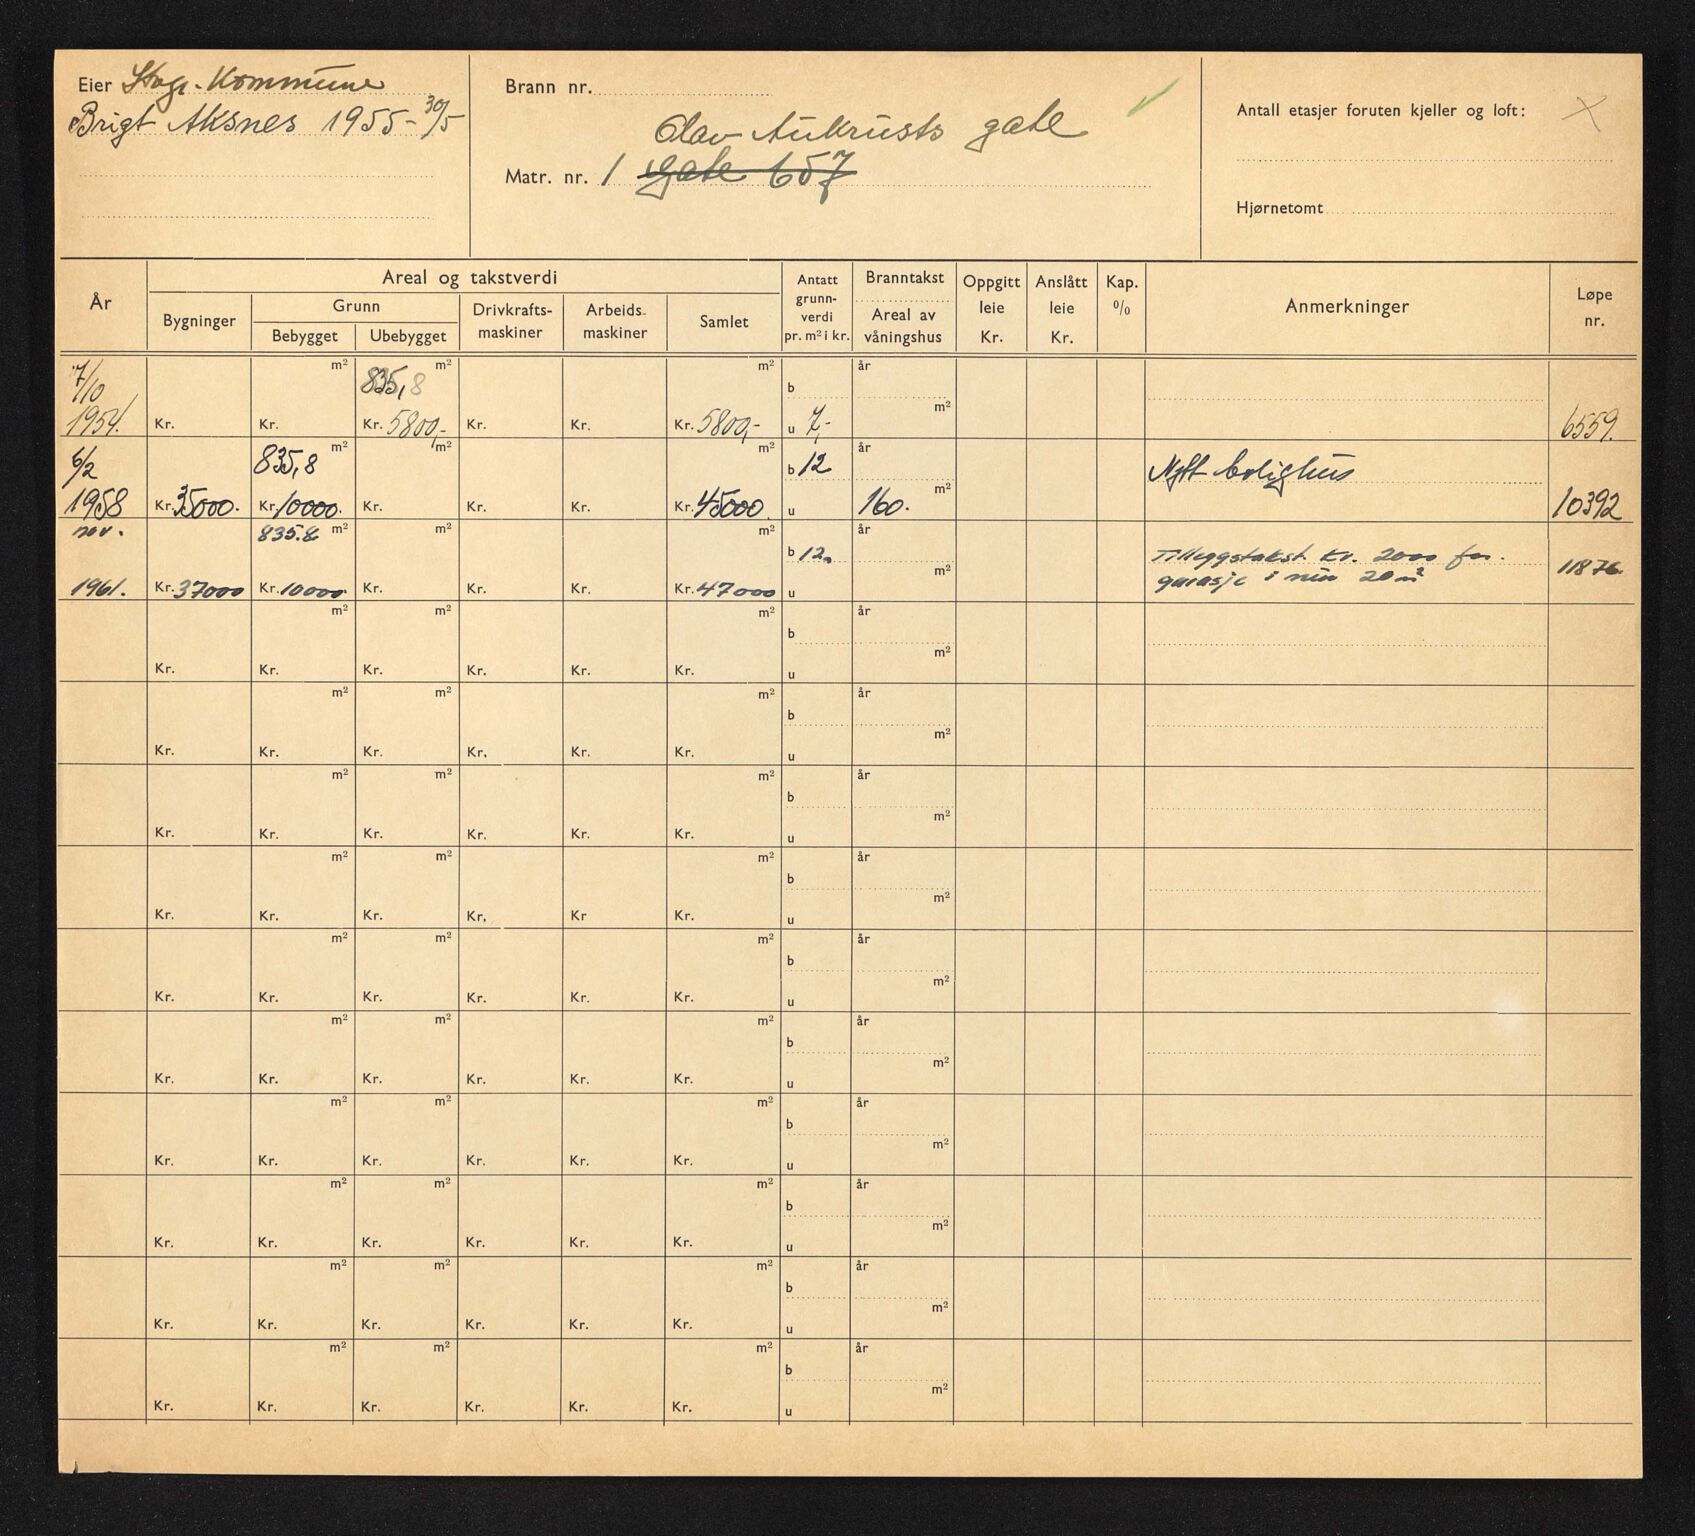 Eier Stvgr. Kommune
Brigt Aksnes 1955-30/5
Brann nr.
Olav Aukrusts gate
Matr. nr. 1 gate 657
Antall etasjer foruten kjeller og loft: X
Hjørnetomt
År
Areal og takstverdi
Bygninger
Grunn
Bebygget Ubebygget
Drivkrafts-
maskiner
Arbeids-
maskiner
Samlet
Antatt
grunn-
verdi
pr. m² i kr.
Branntakst
Areal av
våningshus
Oppgitt
leie
Kr.
Anslått
leie
Kr.
Kap.
%
Anmerkninger
Løpe
nr.
7/10 m² 835,8 m² m² b år
1954. Kr. Kr. Kr. 5800,- Kr. Kr. Kr. 5800,- u 7,- m² 6559.
6/2 835,8 m² m² m² b 12 år Nytt bolighus
1958 Kr. 35000. Kr. 10000. Kr. Kr. Kr. Kr. 45000 u 160. m² 10392
nov. 835.8 m² m² m² b 12. år Tilleggstakst kr. 2000 for
1961. Kr. 37000 Kr. 10000. Kr. Kr. Kr. Kr. 47000 u m² garasje i mur 20 m² 11876.
m² m² m² b år
Kr. Kr. Kr. Kr. Kr. Kr. u m²
m² m² m² b år
Kr. Kr. Kr. Kr. Kr. Kr. u m²
m² m² m² b år
Kr. Kr. Kr. Kr. Kr. Kr. u m²
m² m² m² b år
Kr. Kr. Kr. Kr. Kr Kr. u m²
m² m² m² b år
Kr. Kr. Kr. Kr. Kr. Kr. u m²
m² m² m² b år
Kr. Kr. Kr. Kr. Kr. Kr. u m²
m² m² m² b år
Kr. Kr. Kr. Kr. Kr. Kr. u m²
m² m² m² b år
Kr. Kr. Kr. Kr. Kr. Kr. u m²
m² m² m² b år
Kr. Kr. Kr. Kr. Kr. Kr. u m²
m² m² m² b år
Kr. Kr. Kr. Kr. Kr. Kr. u m²